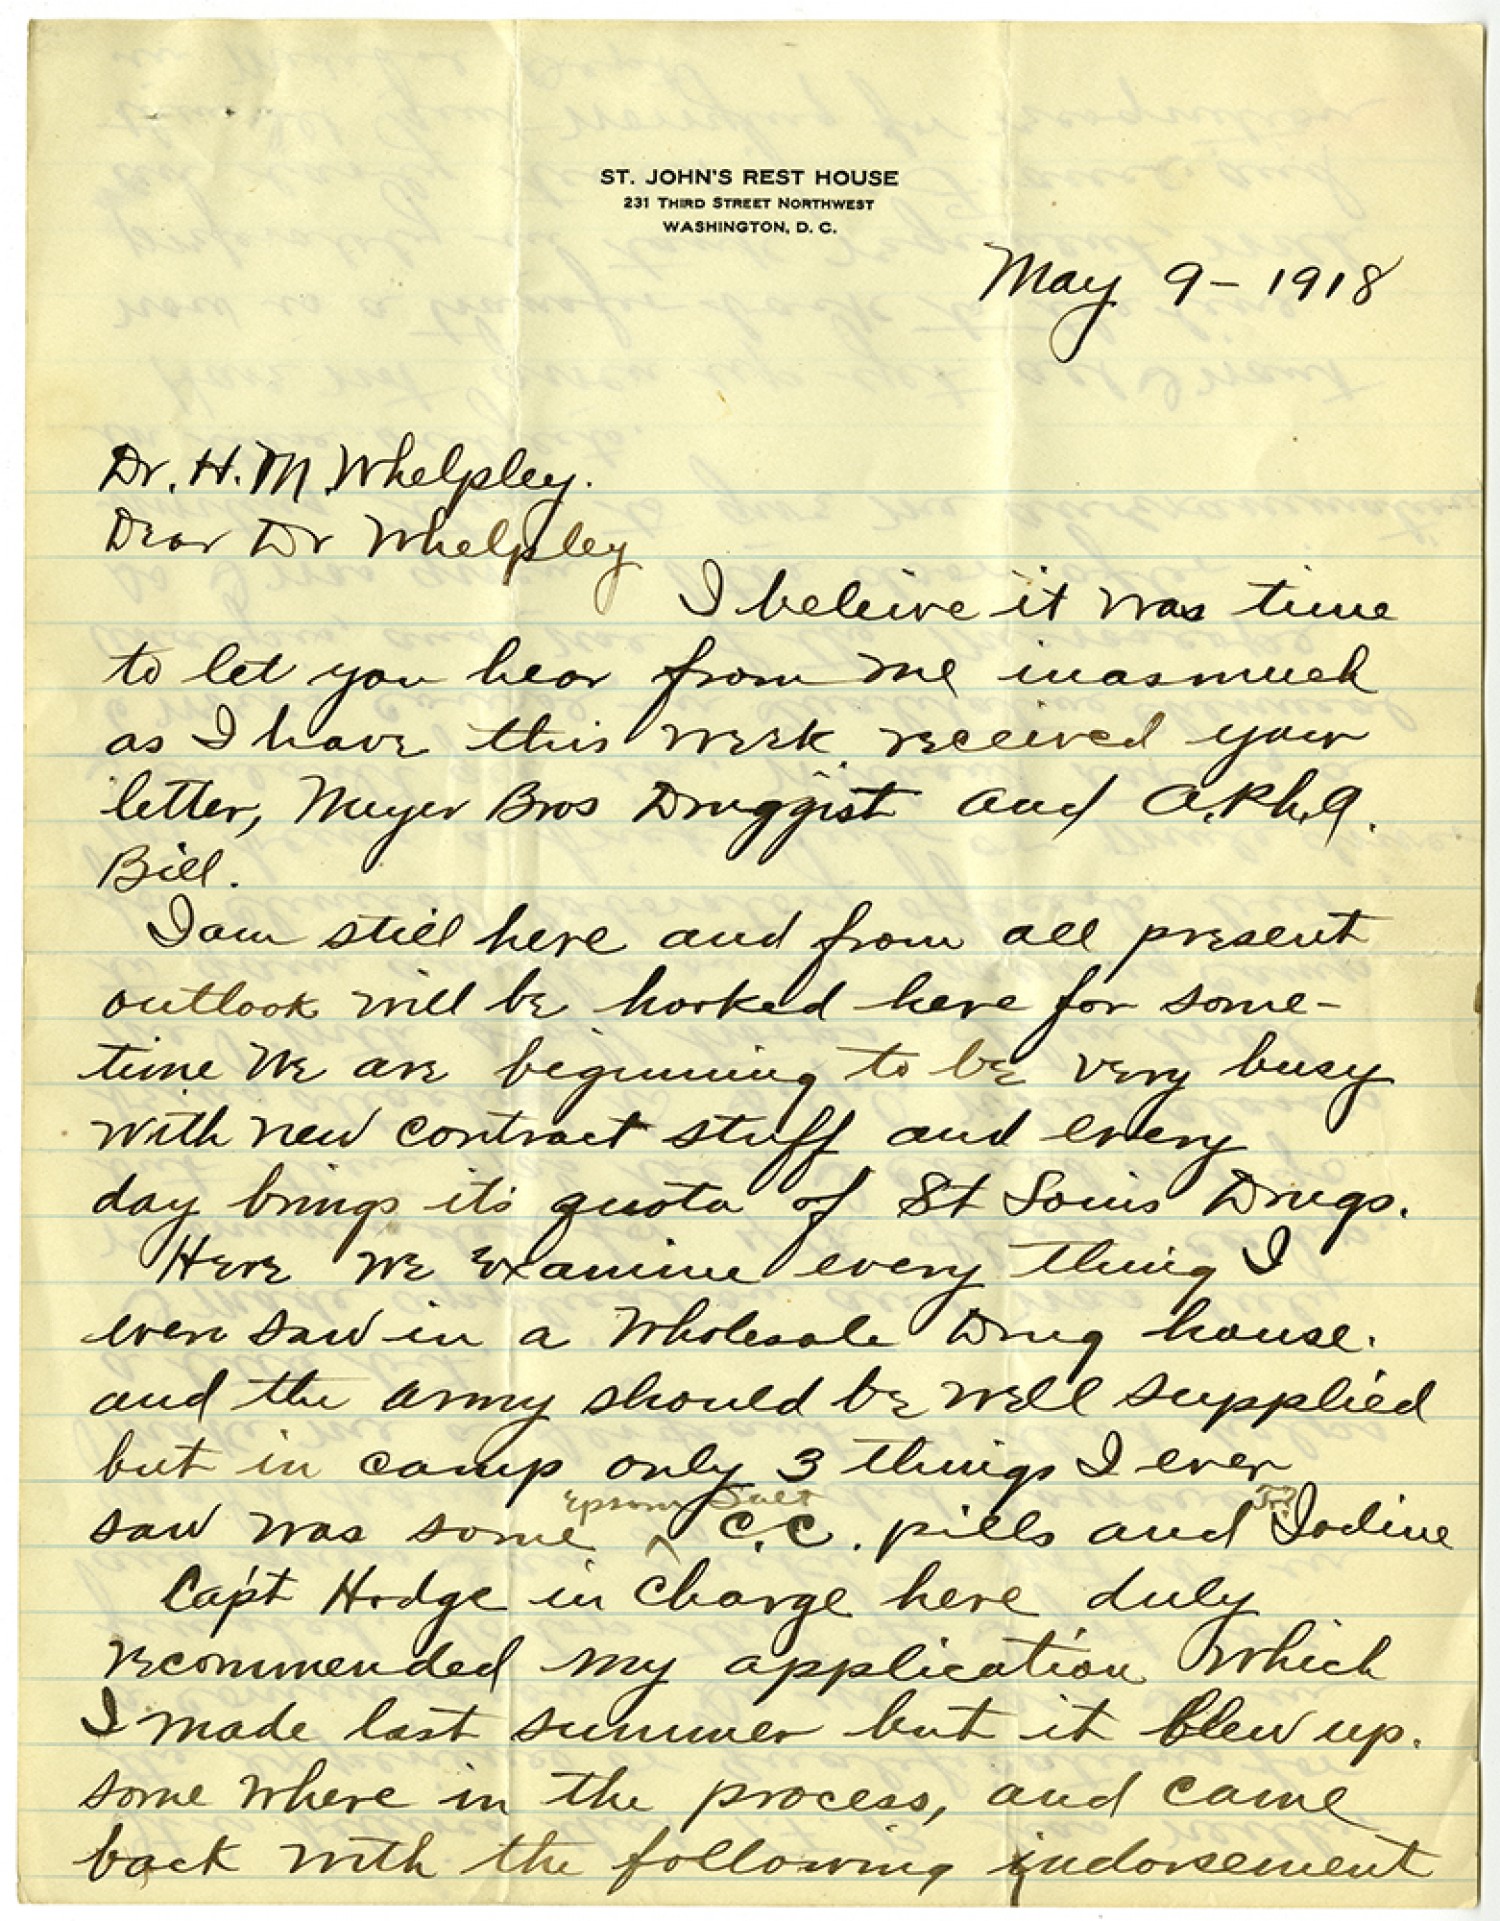 ST. JOHN'S REST HOUSE
231 THIRD STREET NORTHWEST
WASHINGTON, D. C.
May 9 - 1918
Dr. H. M. Whelpley.
Dear Dr Whelpley
I beleive it was time
to let you hear from me inasmuch
as I have this week received your
letter, Meyer Bros Druggist and A.Ph.A.
Bill.
I am still here and from all present
outlook will be hooked here for some-
time We are beginning to be very busy
with new contract stuff and every
day brings its quota of St Louis Drugs.
Here we examine every thing I
ever saw in a Wholesale Drug house.
and the army should be well supplied
but in camp only 3 things I ever
Epsom Salt Tr
saw was some ^ C.C. pills and Iodine
Capt Hodge in charge here duly
recommended my application which
I made last summer but it blew up.
some where in the process, and came
back with the following indorsement